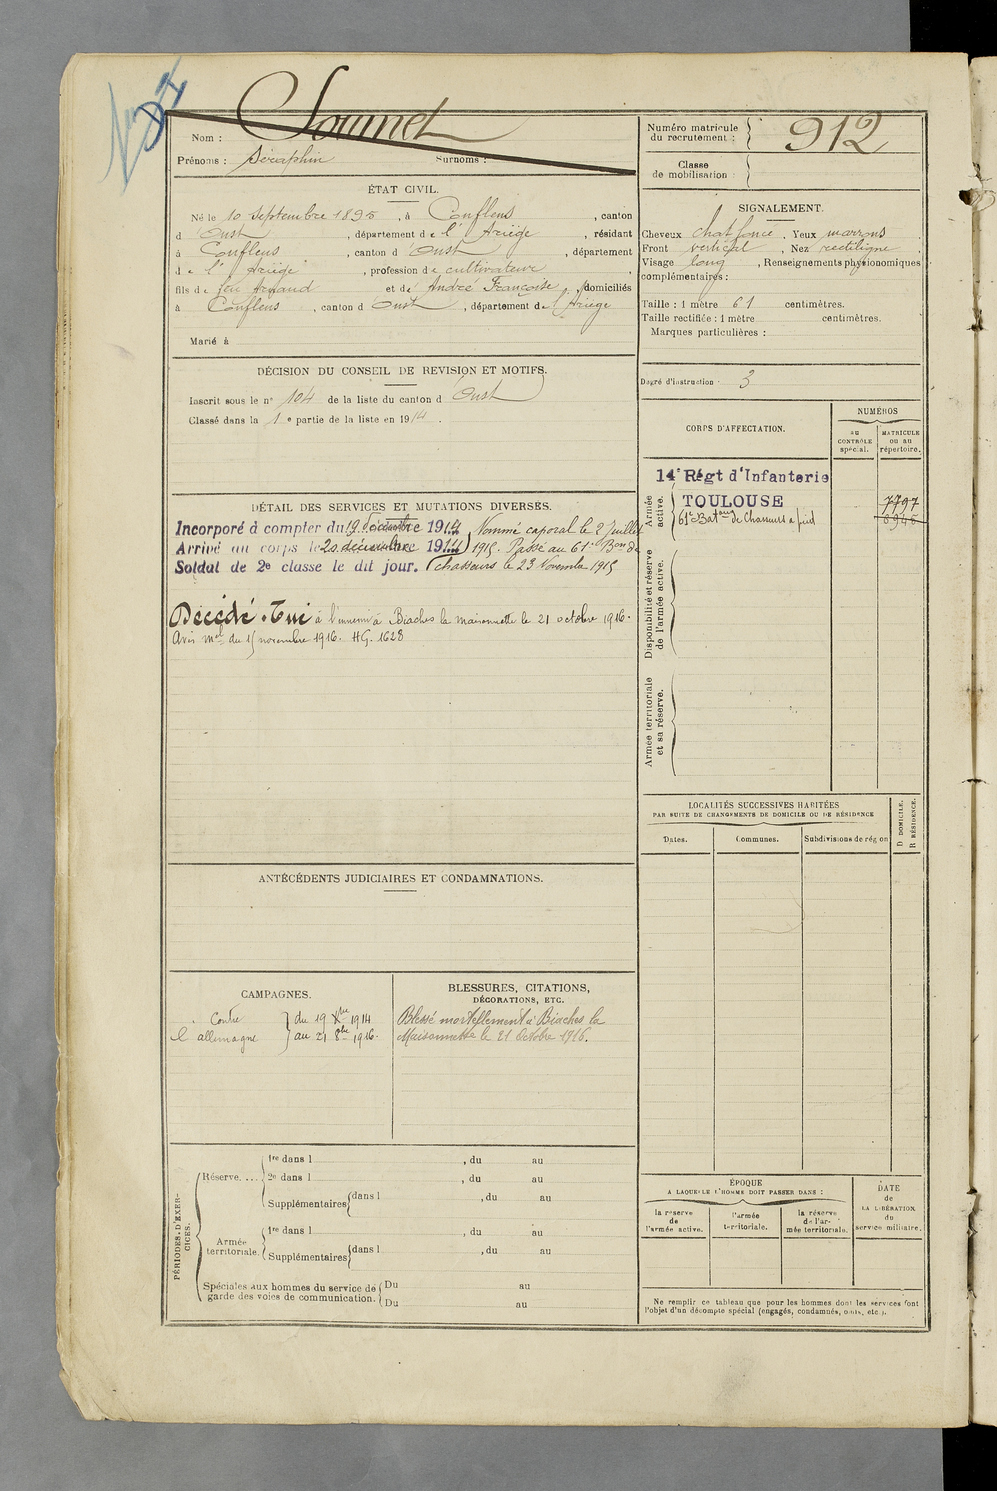 Nom : Souquet
Prénoms : Séraphin Surnoms :
Numéro matricule du recrutement : 912
Classe de mobilisation :
ÉTAT CIVIL.
Né le 10 septembre 1895, à Couflens, canton
d'Oust, département de l'Ariège, résidant
à Couflens, canton d'Oust, département
de l'Ariège, profession de cultivateur,
fils de feu Arnaud et de André Françoise, domiciliés
à Couflens, canton d Oust, département de l'Ariège
Marié à
SIGNALEMENT.
Cheveux chat foncé, Yeux marrons
Front vertical, Nez rectiligne
Visage long, Renseignements physionomiques
complémentaires :
Taille : 1 mètre 61 centimètres.
Taille rectifiée : 1 mètre centimètres.
Marques particulières :
Degré d'instruction : 3
DÉCISION DU CONSEIL DE REVISION ET MOTIFS.
Inscrit sous le n° 104 de la liste du canton d'Oust
Classé dans la 1e partie de la liste en 1914.
CORPS D'AFFECTATION.
NUMÉROS
AU CONTRÔLE spécial.
MATRICULE ou au répertoire.
Armée active.
14e Régt d'Infanterie
TOULOUSE 7797
61e Bataon de Chasseurs à pied 6946
Disponibilité et réserve de l'armée active.
Armée territoriale et sa réserve.
DÉTAIL DES SERVICES ET MUTATIONS DIVERSES.
Incorporé à compter du 19 décembre 1914 Nommé caporal le 2 Juillet
Arrivé au corps le 20 décembre 1914 1915. Passé au 61e Bon de
Soldat de 2e classe le dit jour. chasseurs le 23 Novembre 1915
Décédé. Tué à l'ennemi à Biaches la maisonnette le 21 octobre 1916.
Avis mel du 15 novembre 1916. HG. 1628
LOCALITÉS SUCCESSIVES HABITÉES
PAR SUITE DE CHANGEMENTS DE DOMICILE OU DE RÉSIDENCE
Dates. Communes. Subdivisions de région
D DOMICILE.
R RÉSIDENCE.
ANTÉCÉDENTS JUDICIAIRES ET CONDAMNATIONS.
CAMPAGNES.
Contre du 19 Xbre 1914
l'allemagne au 21 8bre 1916.
BLESSURES, CITATIONS,
DÉCORATIONS, ETC.
Blessé mortellement à Biaches la
Maisonnette le 21 Octobre 1916.
PÉRIODES D'EXERCICES.
Réserve....
1re dans l , du au
2e dans l , du au
Supplémentaires dans l , du au
Armée territoriale.
1re dans l , du au
Supplémentaires dans l , du au
Spéciales aux hommes du service de Du au
garde des voies de communication. Du au
ÉPOQUE
A LAQUELLE L'HOMME DOIT PASSER DANS :
la réserve de l'armée active.
l'armée territoriale.
la réserve de l'armée territoriale.
DATE
de
LA LIBÉRATION
du
service militaire.
Ne remplir ce tableau que pour les hommes dont les services font
l'objet d'un décompte spécial (engagés, condamnés, omis, etc.).